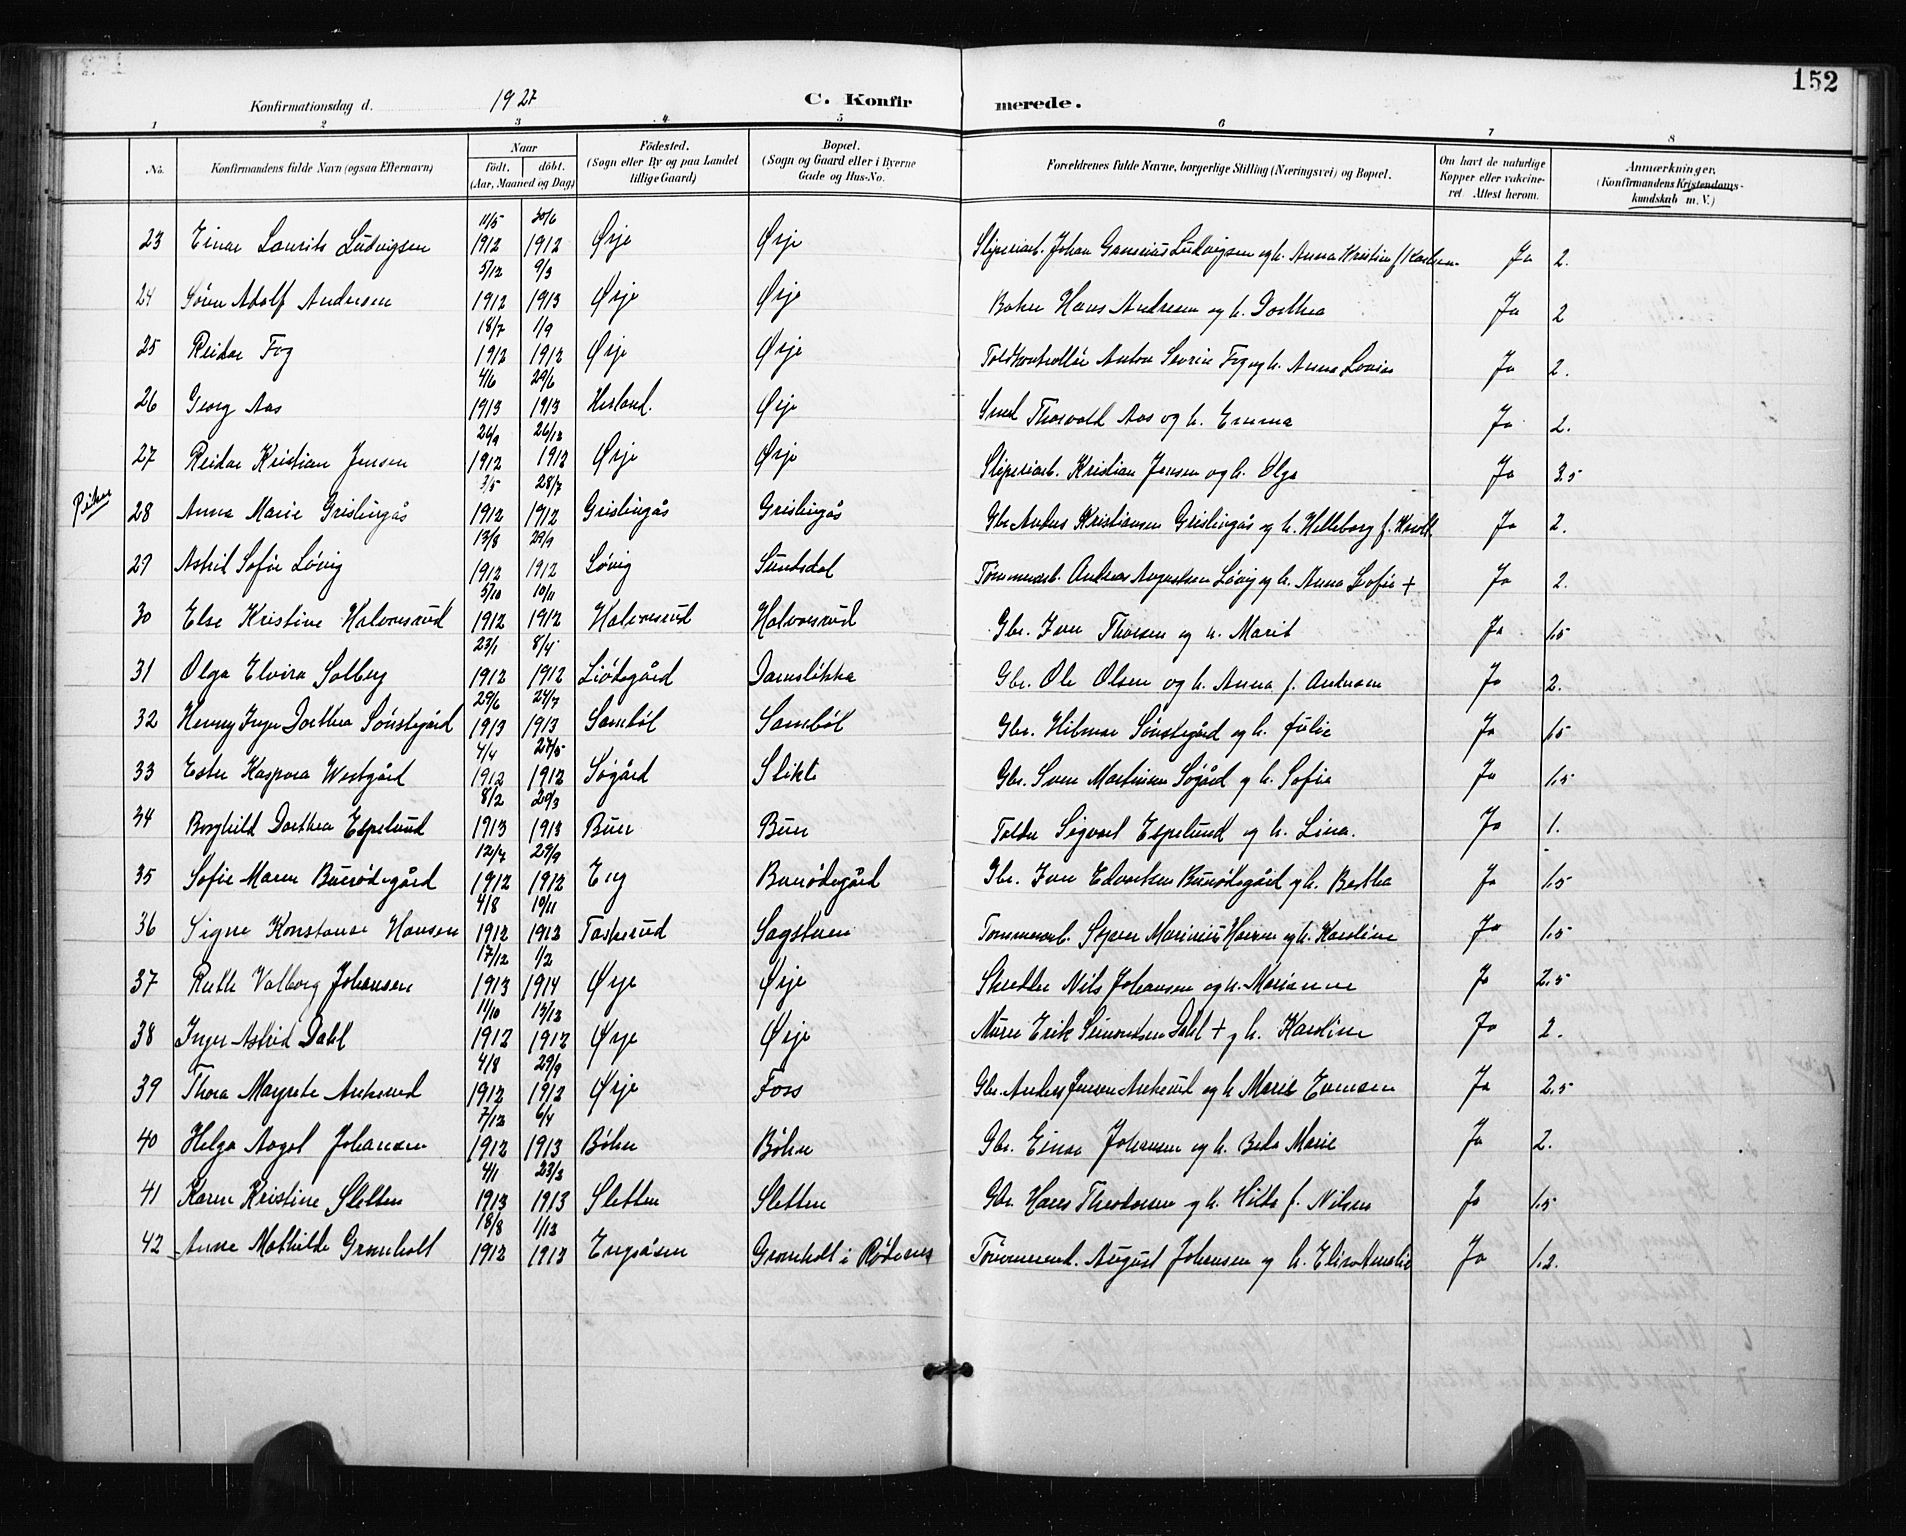 152
Konfirmationsdag d. 1927 C. Konfirmerede.
1 2 3 4 5 6 7 8
No. Konfirmandens fulde Navn (ogsaa Efternavn) Naar födt. döbt. (Aar, Maaned og Dag) Födested. (Sogn eller By og paa Landet tillige Gaard) Bopæl. (Sogn og Gaard eller i Byerne Gade og Hus-No. Forældrenes fulde Navne, borgerlige Stilling (Næringsvei) og Bopæl. Om havt de naturlige Kopper eller vakcineret. Attest herom. Anmærkninger. (Konfirmandens Kristendomskundskab m. V.)
23 Einar Laurits Ludvigsen 11/5 1912 30/6 1912 Ørje Ørje Sliperiarb. Johan Ludvigsen og h. Anna Kristine f. Karlsen Ja 2.
24 Sören Adolf Andersen 5/12 1912 9/3 1913 Ørje Ørje Baker Hans Andersen og h. Dorthea Ja 2
25 Reidar Fog 18/7 1912 1/9 1912 Ørje Ørje Toldkontrollör Anton Severin Fog og h. Anna Lovise Ja 2.
26 Georg Aas 4/6 1913 29/6 1913 Ørje Smed Thorvald Aas og h. Emma Ja 2.
27 Reidar Kristian Jensen 26/9 1912 26/12 1912 Ørje Ørje Sliperiarb. Kristian Jensen og h. Olga Ja
Piker 28 Anna Marie Grislingås 3/5 1912 28/7 1912 Grislingås Grislingås Gbr. Anders Kristiansen Grislingås og h. Helleborg Ja 2.
29 Astrid Sofie Lövig 13/8 1912 29/9 1912 Lövig Sundsdal Tömmerarb. Andreas Augustsen Lövig og h. Anna Sofie + Ja 2.
30 Else Kristine Halvorsrud 5/10 1912 10/11 1912 Halvorsrud Halvorsrud Gbr. Iver Thoresen og h. Marit Ja 1.5
31 Olga Elvira Solberg 23/1 1912 8/4 1912 Liödegård Damslökka Gbr. Ole Olsen og h. Anna f. Andersen Ja 2.
32 Henny Inger Dorthea Sönstegård 29/6 1913 27/7 1913 Samböl Samböl Gbr. Hilmar Sönstegård og h. Julie Ja 1.5
33 Ester Kaspara Westgård 4/4 1912 27/5 1912 Sögård Slikti Gbr. Sven Martinsen Sögård og h. Sofie Ja 1.5
34 Borghild Dorthea Espelund 8/2 1913 20/3 1913 Buer Buer Tolder Sigvart Espelund og h. Lina. Ja 1.
35 Sofie Maren Buerödegård 12/7 1912 29/9 1912 Eng Buerödegård Gbr. Iver Edvartsen Buerödegård og h. Bertha Ja 1.5
36 Signe Konstanse Hansen 4/8 1912 10/11 1912 Taskerud Sagstuen Tömmerarb. Marinius Hansen og h. Karoline Ja 1.5
37 Ruth Valborg Johansen 17/12 1913 1/2 1914 Ørje Ørje Skredder Nils Johansen og h. Marianne Ja 2.5
38 Inger Astrid Dahl 11/10 1912 15/12 1912 Ørje Ørje Murer Erik Simonsen Dahl + og h. Karoline Ja 2.
39 Thora Margrete Ankerud 4/8 1912 29/9 1912 Ørje Foss Gbr. Anders Jenson Ankerud og h. Marie Evensen Ja 2.5
40 Helga Aagot Johansen 7/12 1912 6/4 1913 Böhn Böhn Gbr. Einar Johansen og h. Beda Marie Ja 2.
41 Karen Kristine Sletten 4/1 1913 23/3 1913 Sletten Sletten Gbr. Hans Theodorsen og h. Hilda f. Nilsen Ja 1.5
42 Anne Mathilde Gromholt 18/8 1912 1/12 1912 Engåsen Gromholt i Rödenes Tömmerarb. August Johansen og h. Elise Amalie Ja 1.2.